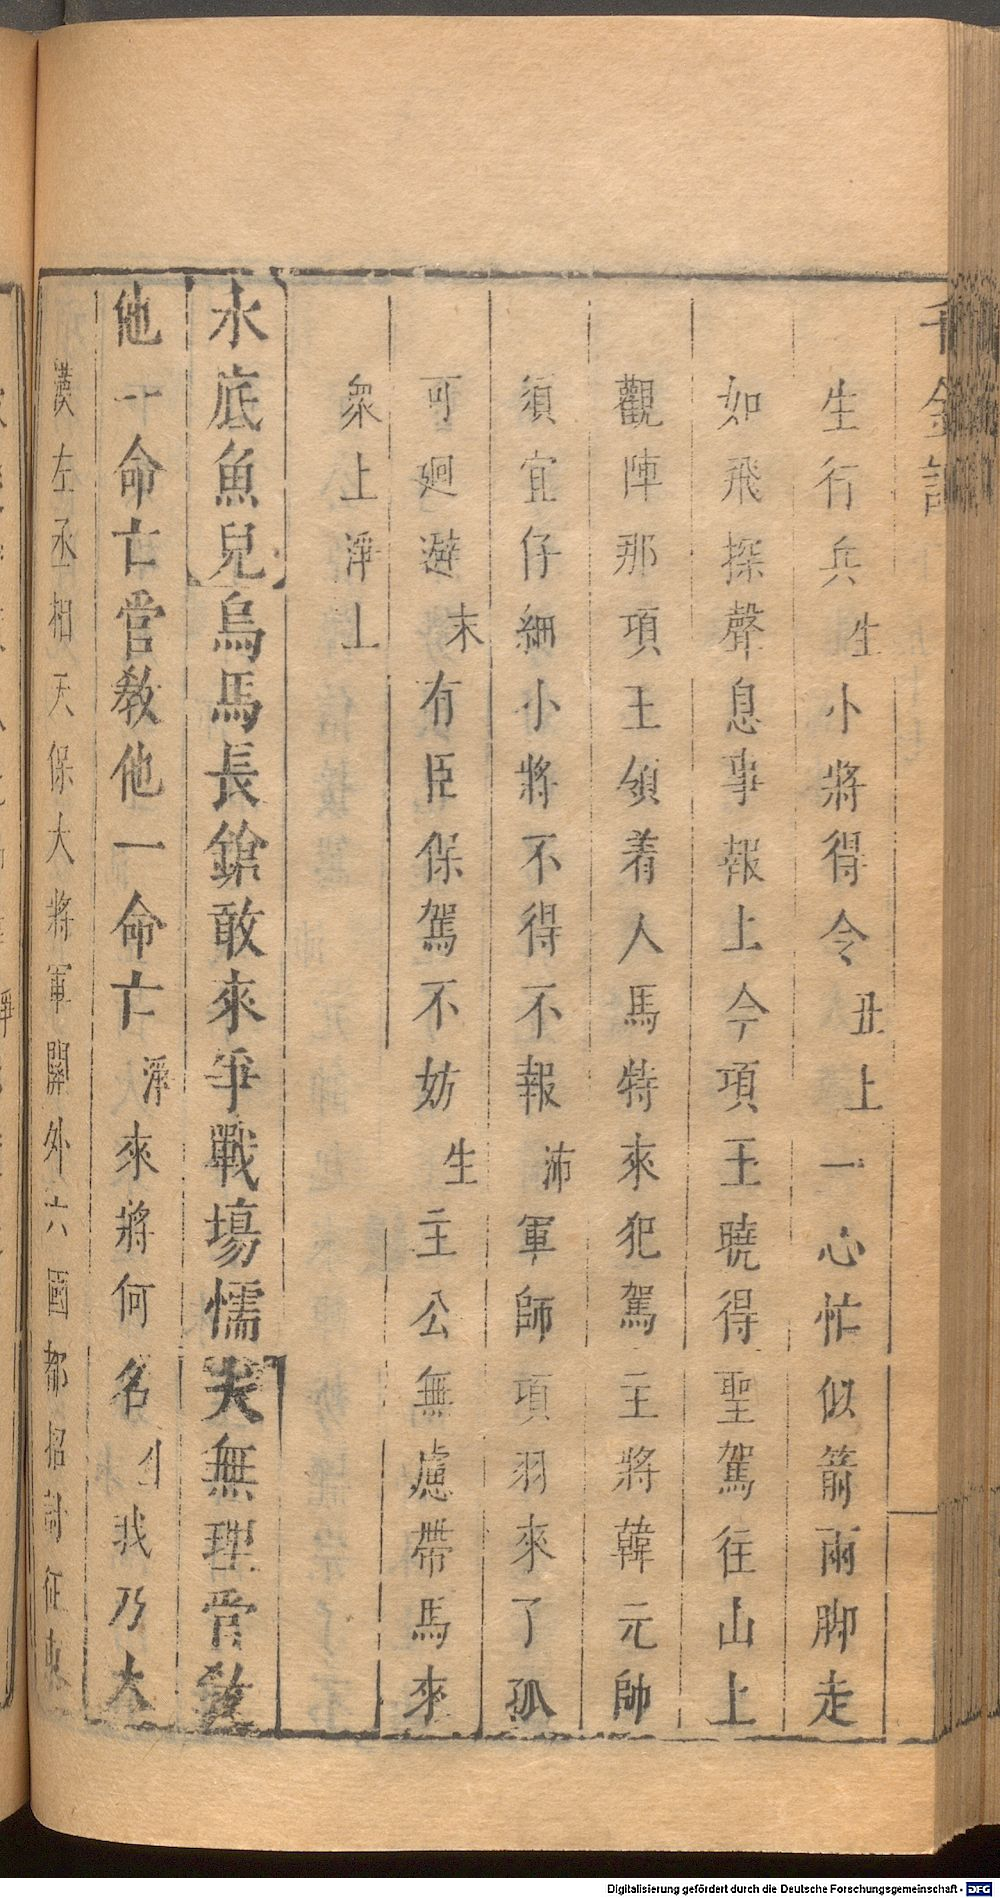 千金記
生行兵生小將得令丑上一心忙似箭兩脚走
如飛探聲息事報上今項王曉得聖駕往山上
觀陣那項王領着人馬特來犯駕主將韓元帥
須宜仔細小將不得不報沛軍師項羽來了孤
可廻避末有臣保駕不妨生主公無慮帶馬來
衆上淨上
水底魚兒烏馬長鎗敢來爭戰場懦夫無理管教
他一命亡管教他一命亡淨來將何名生我乃大
漢左丞相天保大將軍關外六國都招討征東
Digitalisierung gefördert durch die Deutsche Forschungsgemeinschaft - DFG